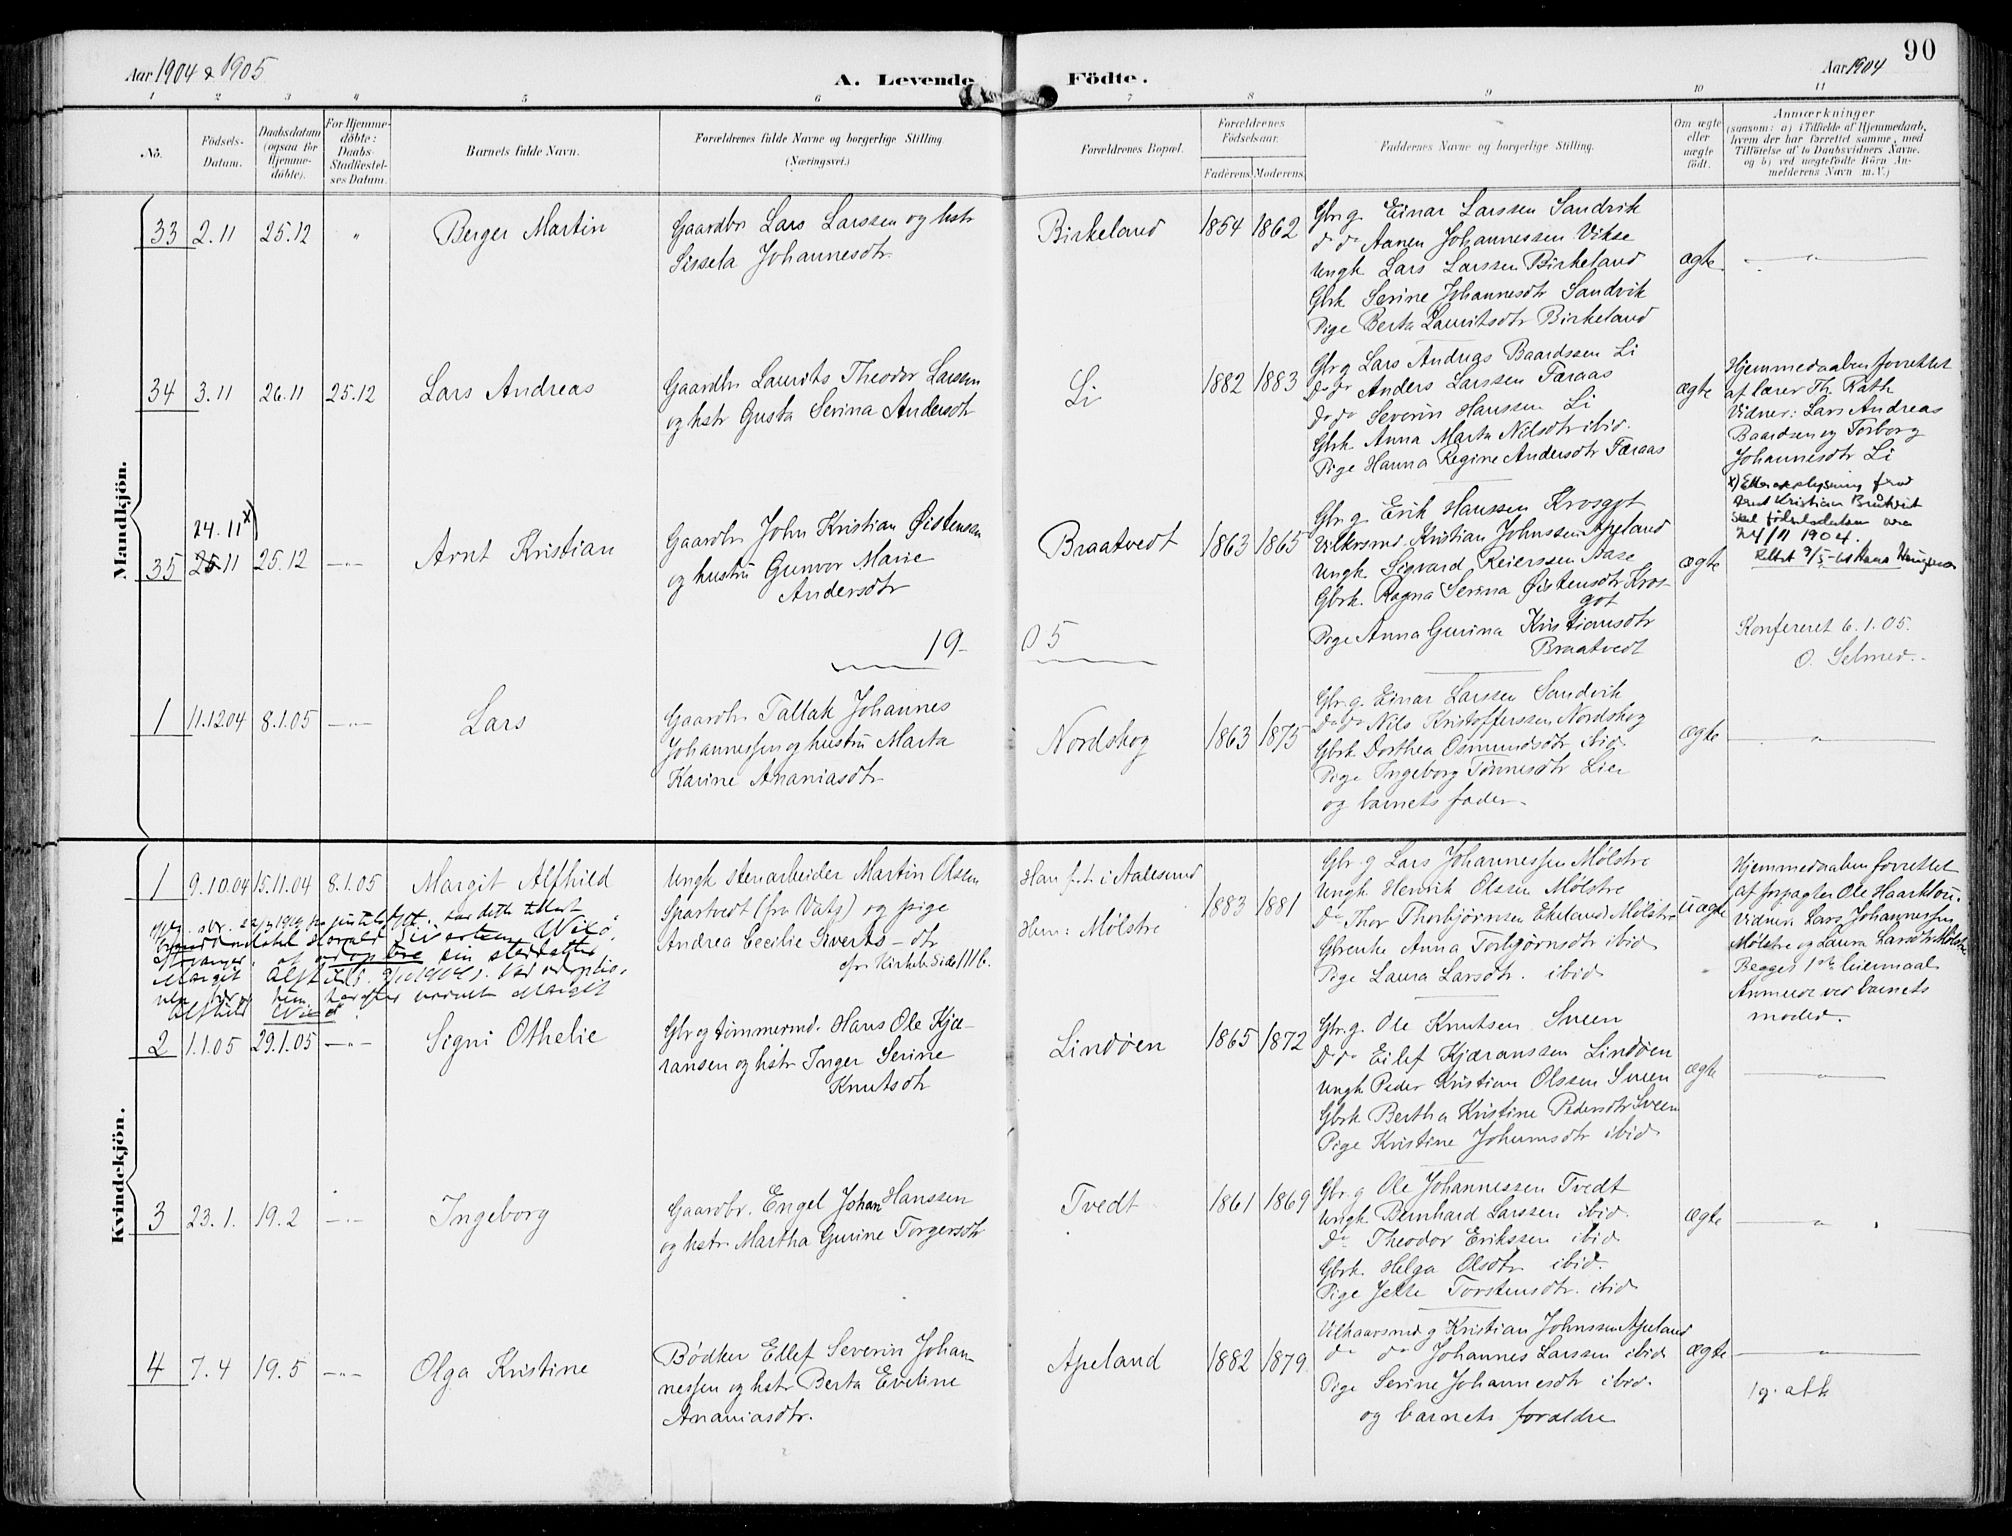 90
Aar 1904 & 1905
A. Levende Födte.
Aar 1904
1 2 3 4 5 6 7 8 9 10 11
No.
Födsels-
Datum.
Daabsdatum
(ogsaa for
Hjemme-
döbte).
For Hjemme-
döbte:
Daabs-
Stadfæstel-
ses Datum.
Barnets fulde Navn.
Forældrenes fulde Navne og borgerlige Stilling
(Næringsvei.)
Forældrenes Bopæl.
Forældrenes
Födselsaar.
Faderens. Moderens.
Faddernes Navne og borgerlige Stilling.
Om ægte
eller
uægte
födt.
Anmærkninger
(saasom: a) i Tilfælde af Hjemmedaab,
hvem der har forrettet samme, med
Tilföielse af to Daabsvidners Navne,
og b) ved uægtefödte Börn An-
melderens Navn m. V.)
Mandkjön.
33 2.11 25.12 " Berger Martin
Gaardbr Lars Larssen og hstr
Sissela Johannesdtr
Birkeland 1854 1862
Gbr g. Einar Larssen Sandvik
do do Aanen Johannessen Vikse
Ungk Lars Larssen Birkeland
Gbrk Serine Johannesdtr Sandvik
Pige Berta Lauritsdtr Birkeland
ægte "
34 3.11 26.11 25.12 Lars Andreas
Gaardbr Laurits Theodor Larssen
og hstr Gusta Serina Andersdtr
Li 1882 1883
Gbr g Lars Andreas Baardssen Li
do do Anders Larssen Færaas
do do Severin Hanssen Li
Gbrk Anna Marta Nilsdtr ibid.
Pige Hanna Regine Andersdtr Færaas
ægte
Hjemmedaaben forrettet
af lærer Th. Rath
Vidner: Lars Andreas
Baardsen og Torborg
Johannesdtr Li
24.11 x)
35 25.11 25.12 — " — Arnt Kristian
Gaardbr John Kristian Øistensen
og hustru Gunvor Marie
Andersdtr
Braatvedt 1863 1865
Gbr g. Erik Hanssen Krosgøt
Vilkrsmd. Kristian Johnssen Apeland
Ungk Sigvard Reierssen Aase
Gbrk. Ragna Serina Øistensdtr Kros-
gøt
Pige Anna Gurina Kristiansdtr
Braatvedt
ægte
x) Efter oplysning fra
Arnt Kristian
skal fødselsdatum være
24/11 1904.
Konfereret 6.1.05.
O. Selmer.
19 05
1 11.12.04 8.1.05 — " — Lars
Gaardbr Tallak Johannes
Johannessen og hustru Marta
Karine Ananiasdtr
Nordskog 1863 1875
Gbr g. Einar Larssen Sandvik
do do Nils Kristofferssen Nordskog
Gbrk Dorthea Osmundsdtr ibid
Pige Ingeborg Tønnesdtr Lier
og barnets fader.
ægte "
Kvindekjön.
1 9.10.04 15.11.04 8.1.05 Margit Alfhild
Ungk stenarbeider Martin Olsen
Spartvedt (fra Vats) og pige
Andrea Cecilie Siverts-dtr
cfr. Kirkeb. Side 111 b.
Han f.t. i Aalesund
Hun: Mølstre
1883 1881
Gbr g Lars Johannessen Mølstre
Ungk Henrik Olssen Mølstre
do Thor Thorbjørnsen Ekeland Mølstre
Gbrenke Anna Torbjørnsdtr ibid
Pige Laura Larsdtr. ibid
uægte
Hjemmedaaben forrettet
af forpagter Ole Haarklou.
Vidner. Lars Johannessen
Mølstre og Laura Larsdtr Mølstre
Begges 1ste leiermaal
Anmeldt ved barnets
moder.
2 1.1.05 29.1.05 — " — Signi Othelie
Gbr og tømmermd. Hans Ole Kjæ-
ransen og hstr Inger Serine
Knutsdtr
Lindøen 1865 1872
Gbr g. Ole Knutsen Sveen
do do Eilef Kjæranssen Lindøen
Ungk Peder Kristian Olssen Sveen
Gbrk Bertha Kristine Pedersdtr Sveen
Pige Kristine Johansdtr ibid.
ægte "
3 23.1. 19.2 — " — Ingeborg
Gaardbr. Engel Johan Hanssen
og hstr Martha Gurine Torgersdtr
Tvedt 1861 1869
Gbr g Ole Johannessen Tvedt
Ungk Bernhard Larssen ibid.
do Theodor Erikssen ibid
Gbrk. Helga Olsdtr ibid.
Pige Jette Torstensdtr. ibid
ægte "
4 7.4 19.5 — " — Olga Kristine
Bødker Ellef Severin Johan-
nessen og hstr Berta Eveline
Ananiasdtr.
Apeland 1882 1879
Vilkaarsmd g Kristian Johnssen Apeland
do do Johannes Larssen ibid
Pige Serine Johannesdtr ibid.
og barnets forældre
ægte "